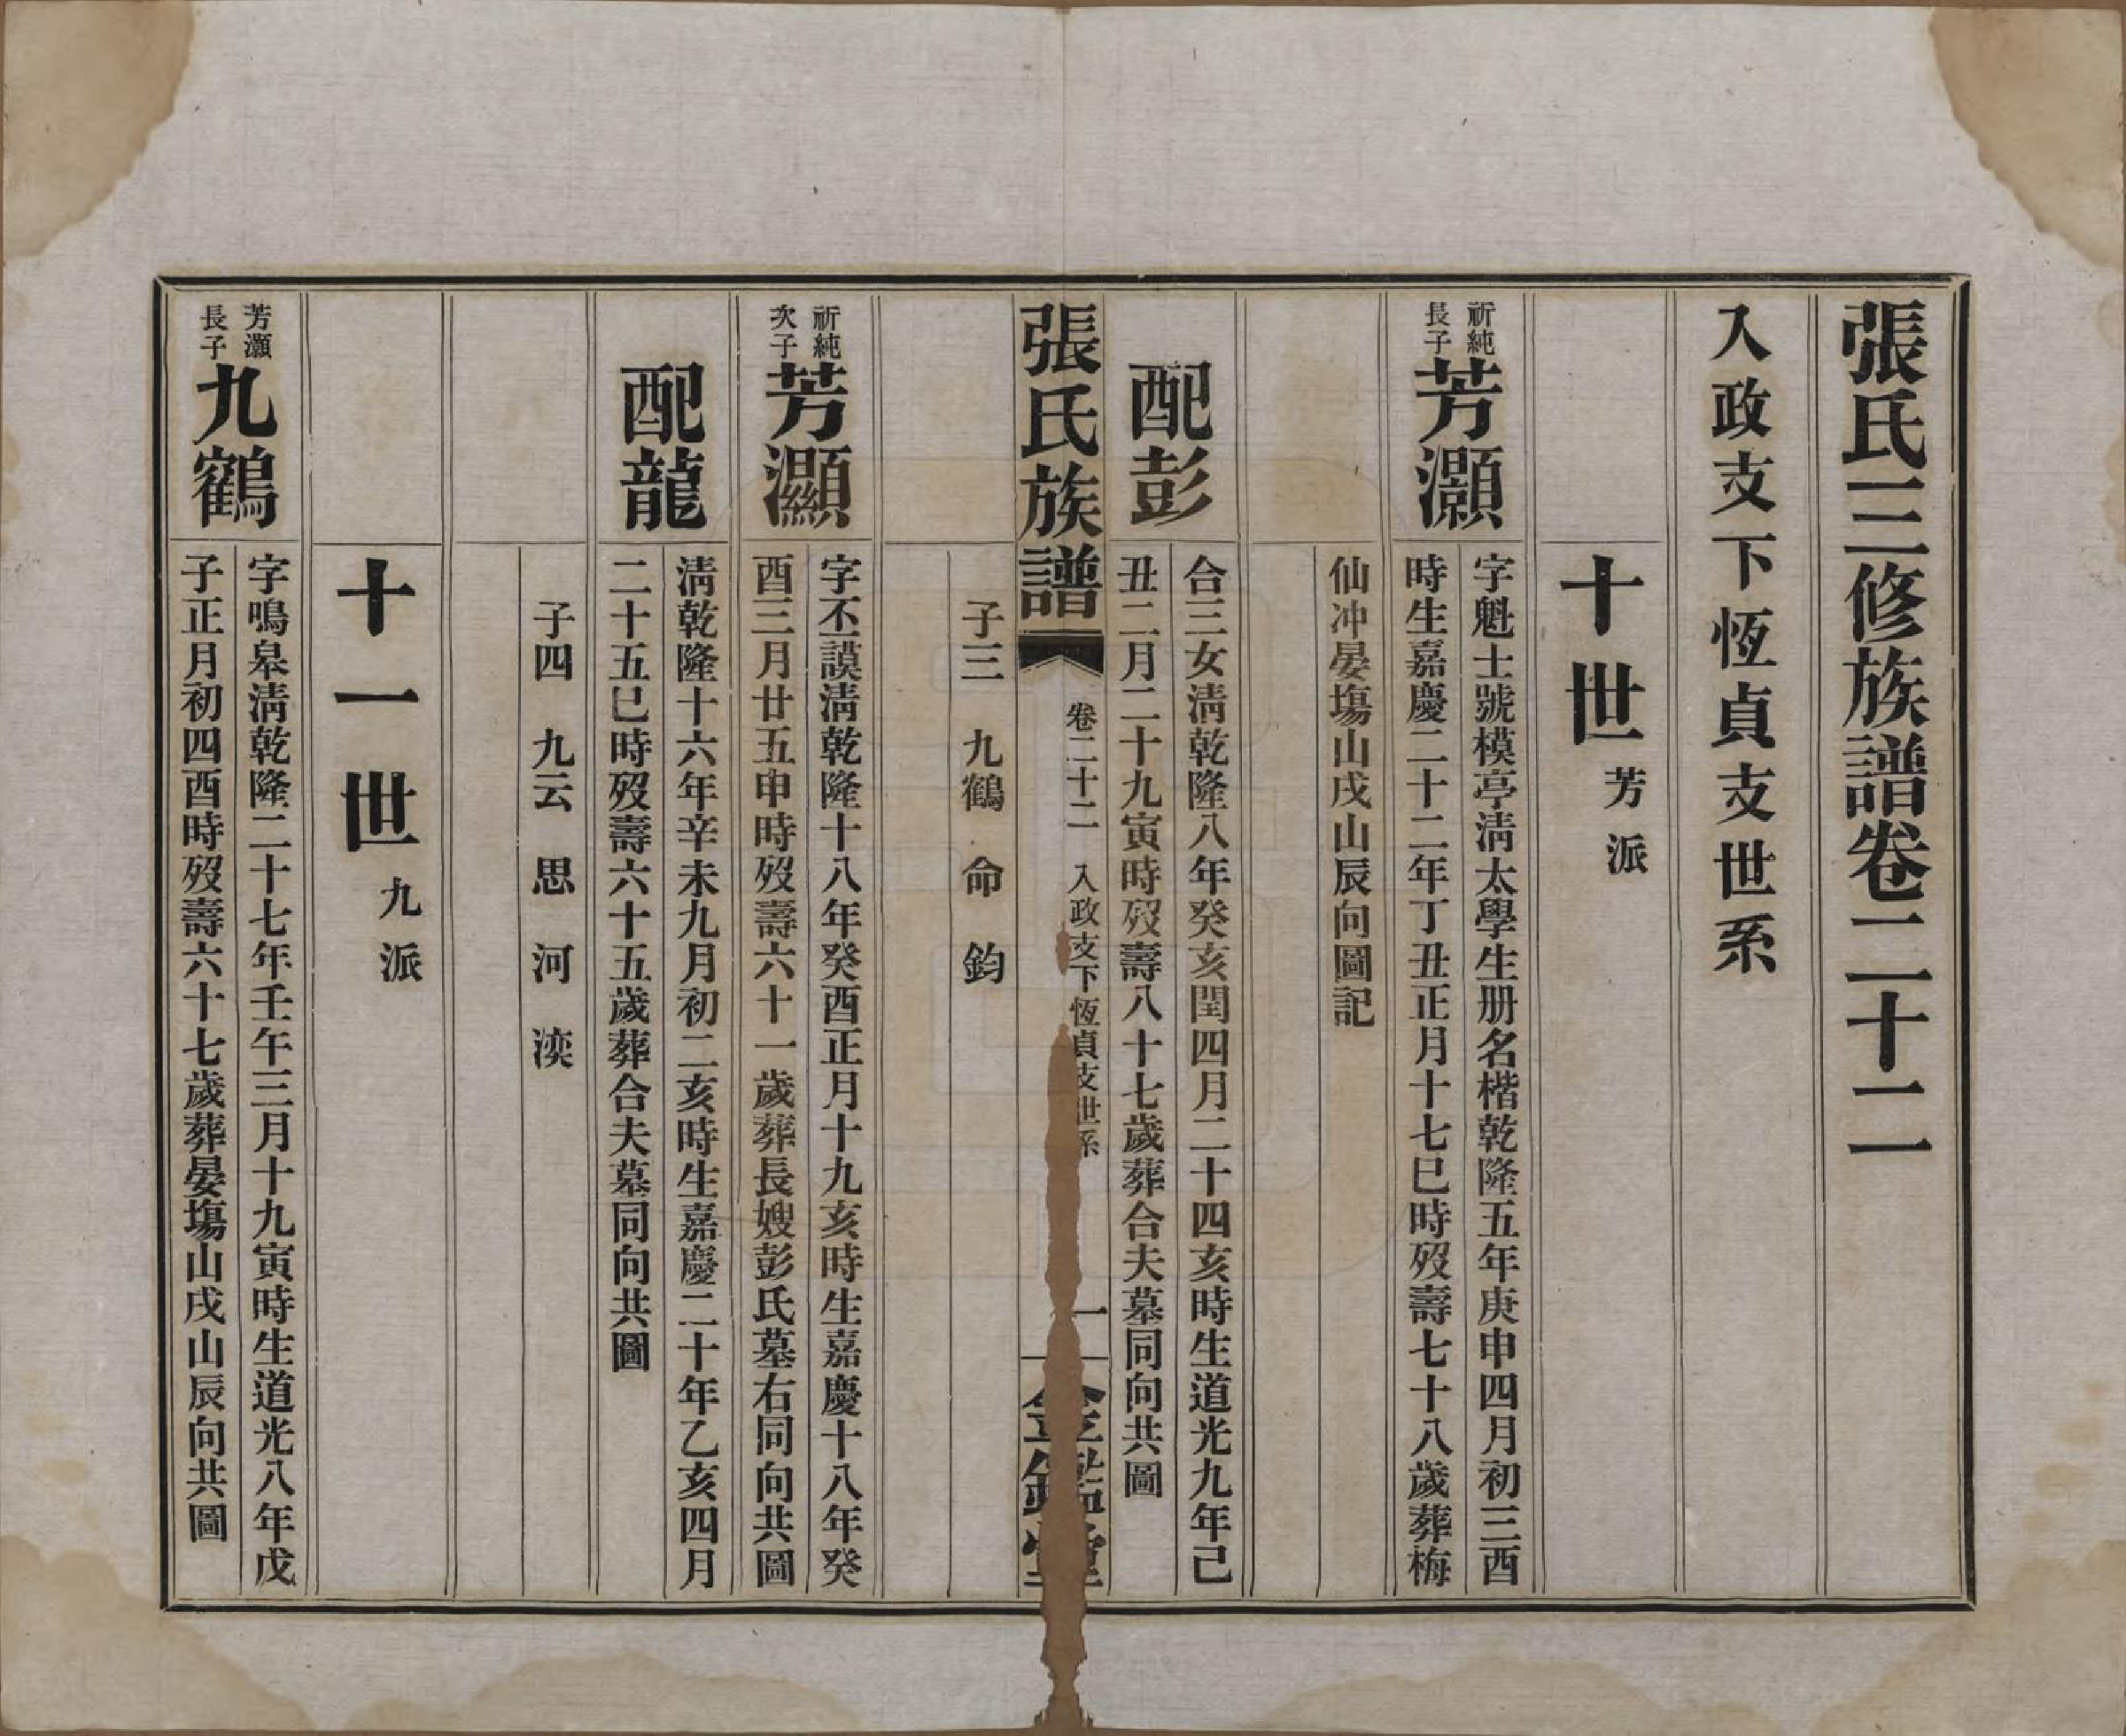 張氏三修族譜卷二十二
入政支下恆貞支世系
十世芳派
祈純
長子
芳灝
字魁士號模亭淸太學生册名楷乾隆五年庚申四月初三酉
時生嘉慶二十二年丁丑正月十七巳時歿壽七十八歲葬梅
仙冲晏塲山戌山辰向圖記
配彭
合三女淸乾隆八年癸亥閏四月二十四亥時生道光九年己
丑二月二十九寅時歿壽八十七歲葬合夫墓同向共圖
張氏族譜
卷二十二
入政支下恆貞支世系
一
金鑑堂
子三 九鶴 命 鈞
祈純
次子
芳灦
字丕謨淸乾隆十八年癸酉正月十九亥時生嘉慶十八年癸
酉三月廿五申時歿壽六十一歲葬長嫂彭氏墓右同向共圖
配龍
淸乾隆十六年辛未九月初二亥時生嘉慶二十年乙亥四月
二十五巳時歿壽六十五歲葬合夫墓同向共圖
子四 九云 思 河 湙
十一世九派
芳灝
長子
九鶴
字鳴皋淸乾隆二十七年壬午三月十九寅時生道光八年戊
子正月初四酉時歿壽六十七歲葬晏塲山戌山辰向共圖